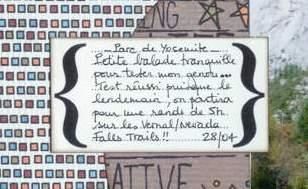 NG
Parc de Yosemite
Petite balade tranquille
pour tester mon genou...
Test réussi puisque le
lendemain, on partira
pour une rando de 5h
sur les Vernal/Nevada
Falls Trails!! 28/04
ATIVE